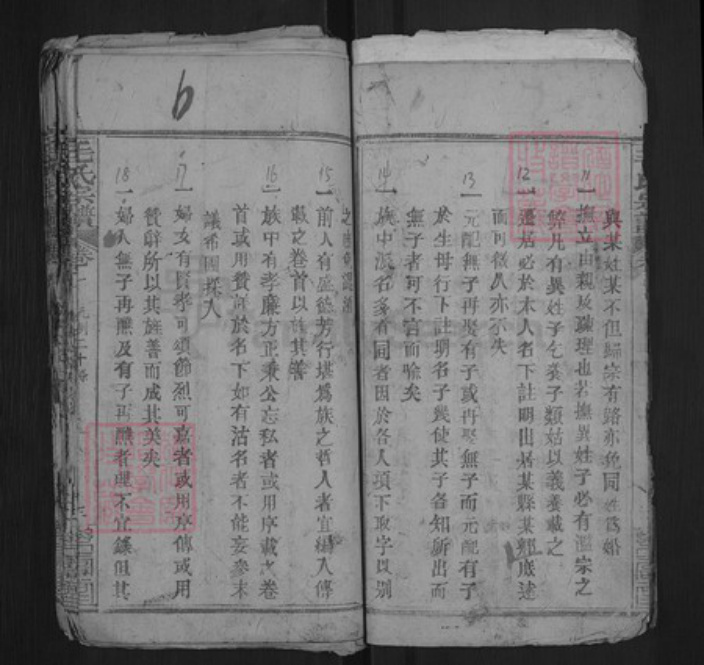 與某姓某不但歸宗有路亦免同姓爲婚
11 一撫立由親及疎理也若撫異姓子必有濫宗之
弊凡有異姓子乞養子類姑以義養載之
12 一遷居必於本人名下註明出居某縣某鄉庶述
而可徵人亦不失
13 一元配無子再娶有子或再娶無子而元配有子
於生母行下註明名子幾使其子各知所出而
無子者可不言而喻矣
14 一族中派名多有同者因於各人項下取字以別
之
15 一前人有盛德芳行堪爲族之哲人者宜編入傳
載之卷首以族其善
16 一族中有孝廉方正秉公忘私者或用序載之卷
首或用贊詞於名下如有沽名者不能妄參末
議希圖採入
17 一婦女有賢孝可頌節烈可嘉者或用序傳或用
贊辭所以其旌善而成其美矣
18 一婦人無子再醮及有子再醮者理不宜錄但其
毛氏宗譜 卷之
6